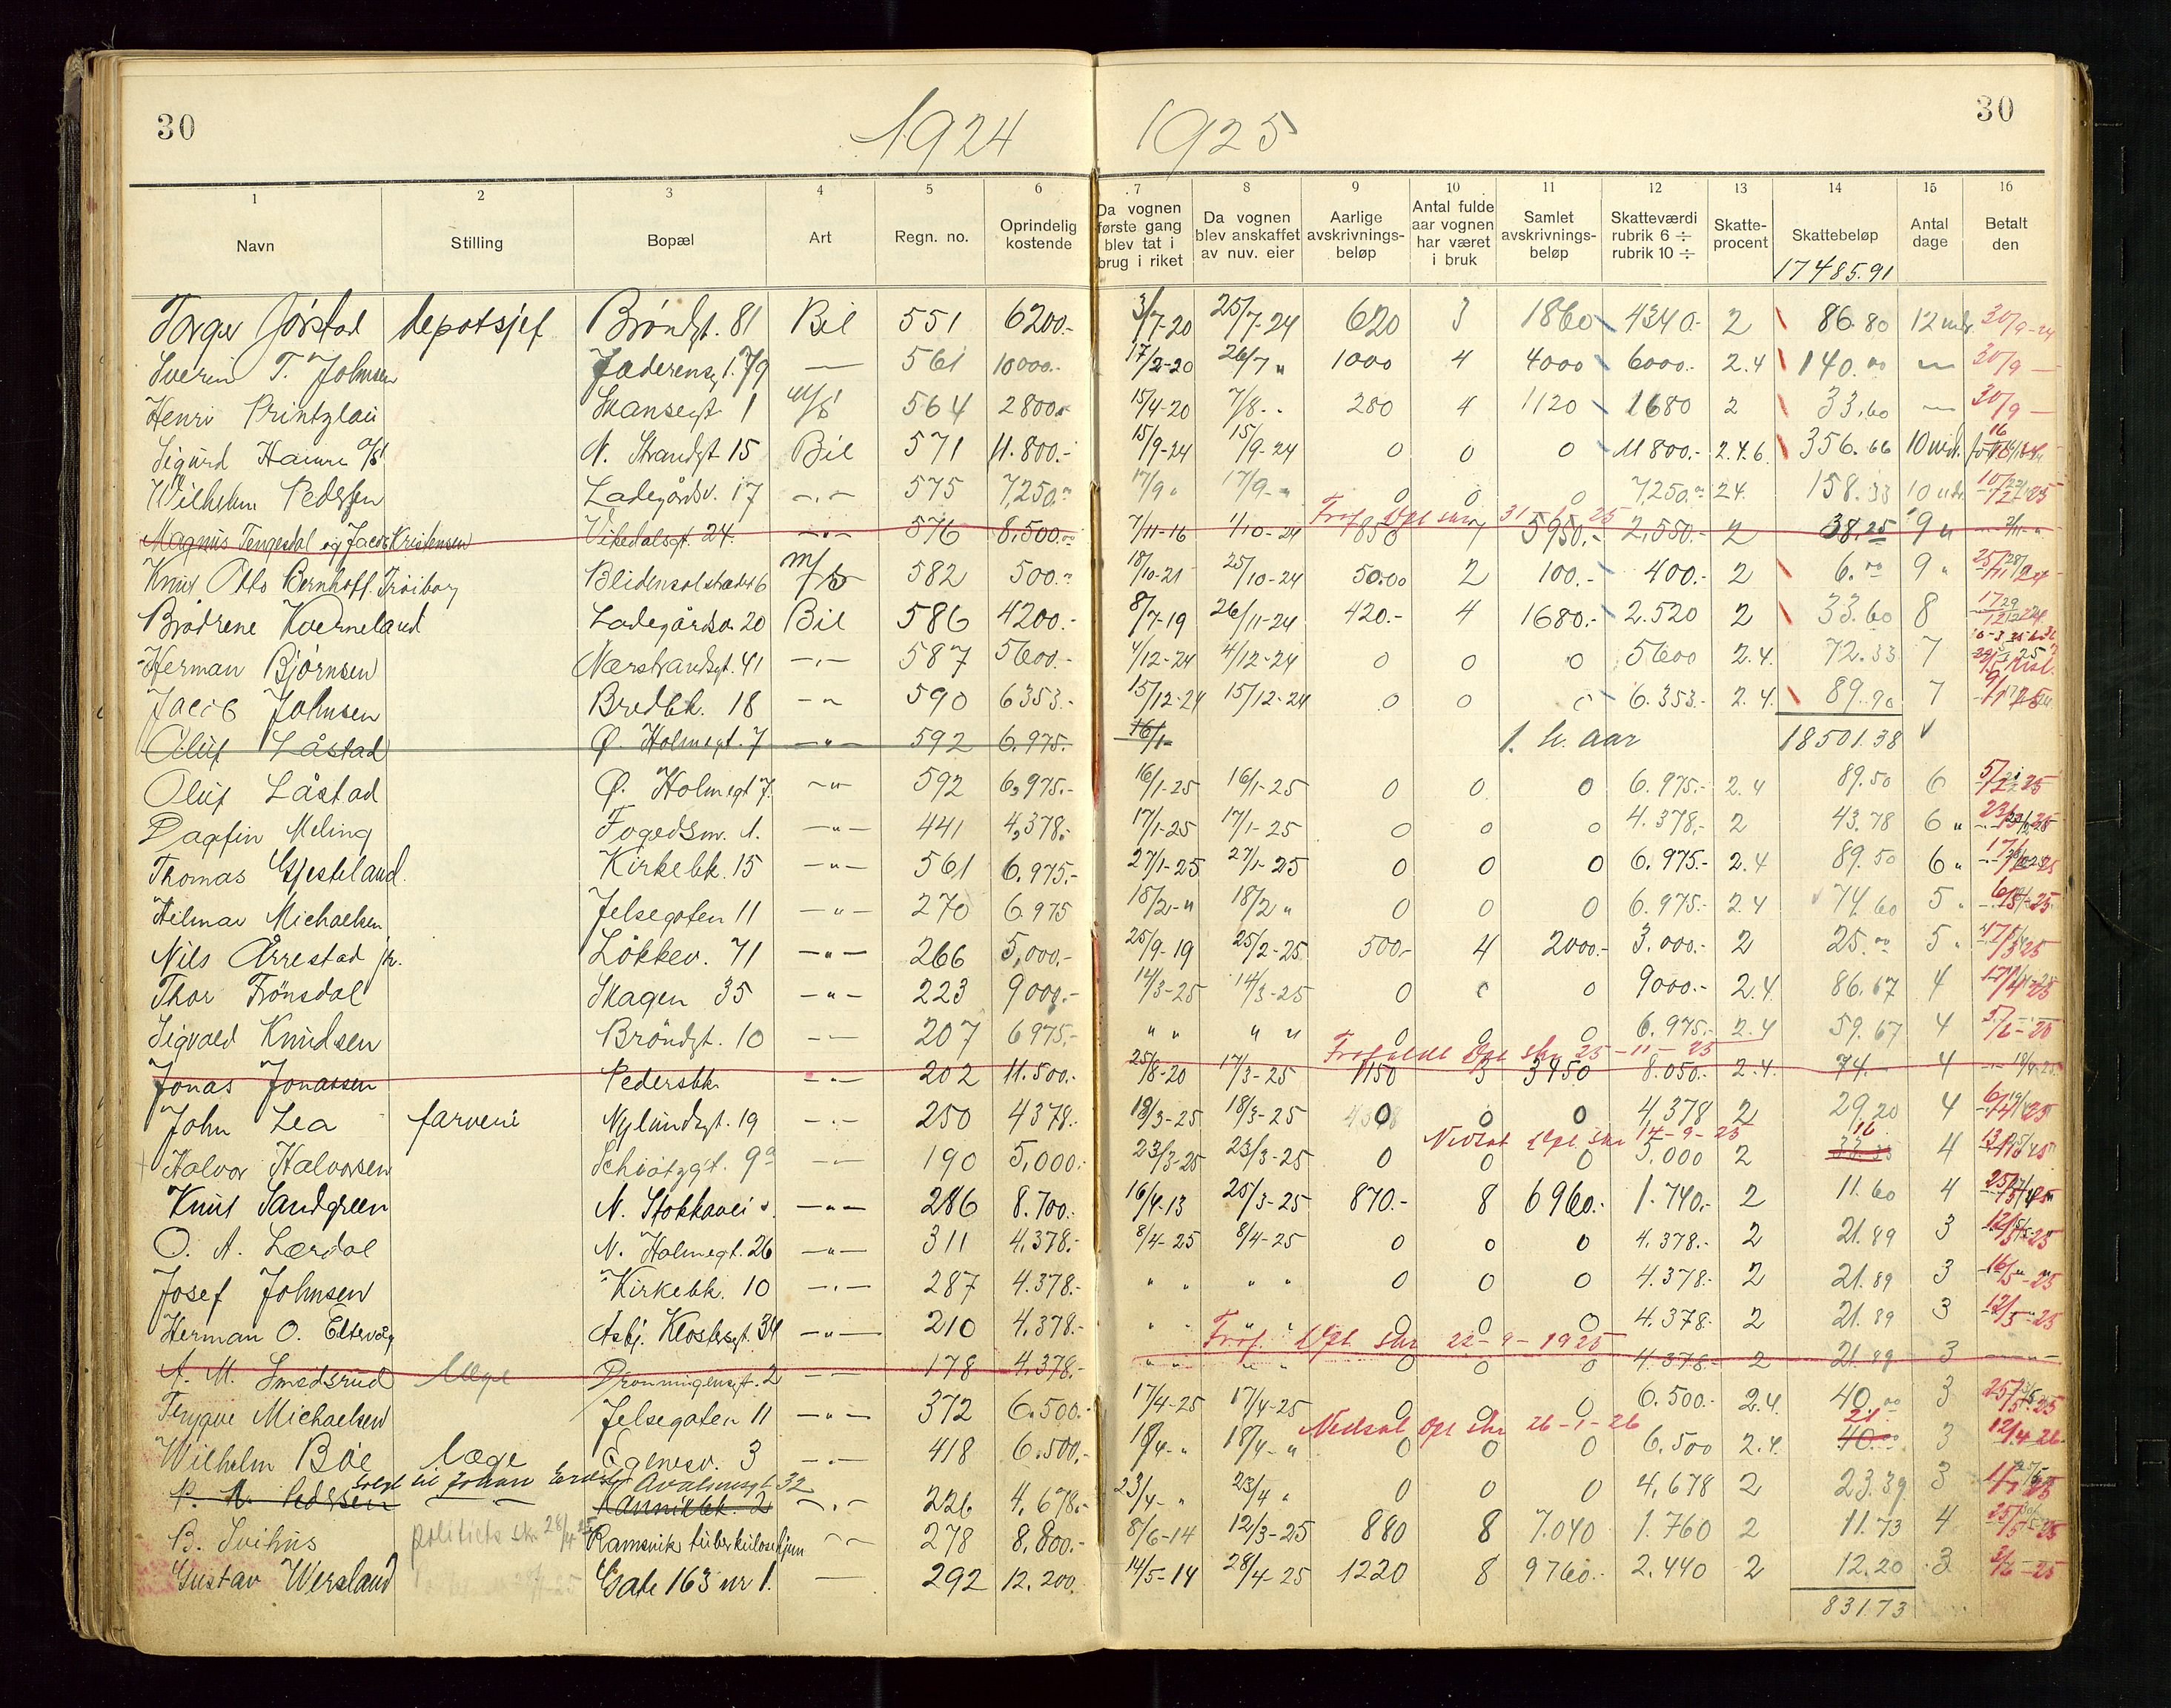 30 1924 1925 30
1 2 3 4 5 6 7 8 9 10 11 12 13 14 15 16
Navn Stilling Bopæl Art Regn. no. Oprindelig kostende Da vognen første gang blev tat i brug i riket Da vognen blev anskaffet av nuv. eier Aarlige avskrivnings-beløp Antal fulde aar vognen har været i bruk Samlet avskrivnings-beløp Skatteværdi rubrik 6 ÷ rubrik 10 ÷ Skatte-procent Skattebeløp Antal dage Betalt den
17485.91
Torger Gjørstad depotsjef Brøndgt. 81 Bil 551 6200.- 3/7-20 25/7-24 620 3 1860 4340.- 2 86.80 12 mdr. 30/9-24
Sverin T. Johnsen Jæderensg. 179 — 561 10000.- 17/2-20 26/7 " 1000 4 4000 6000.- 2.4 140.00 — 30/9 —
Henri Printzlau Skansegt. 1 m/s 564 2800.- 15/4-20 7/8 - . 280 4 1120 1680 2 33.60 — 30/9 —
Sigurd Hauure N. Strandgt. 15 Bil 571 11.800.- 15/9-24 15/9-24 0 0 0 11800.- 2.4.6. 356.66 10 mdr.
Wilhelm Pedersen Ladegårdsv. 17 —.— 575 7,250.- 17/9 " 17/9- " 0 0 0 7,250.- 2.4. 158.33 10 mdr.
Magnus Tengesdal og Jacob Kristensen Vikedalsgt. 24. —"— 576 8,500.- 7/11-16 1/10-24 850 7 5950.- 2,550.- 2 38.25 9 "
Knut Otto Bernhoft Troiborg Blidensolstrædet 6 m/s 582 500.- 18/10-21 25/10-24 50.00 2 100.- 400.- 2 6.00 9 "
Brødrene Kverneland Ladegårdsv. 20 Bil 586 4200.- 8/7-19 26/11-24 420.- 4 1680.- 2.520 2 33.60 8
Herman Bjørnsen Nærstrandsgt. 41 —.— 587 5600.- 4/12-24 4/12-24 0 0 0 5600 2.4. 72.33 7
Jacob Johnsen Bredbk. 18 —"— 590 6353.- 15/12-24 15/12-24 0 0 0 6.353.- 2.4. 89.90 7
Oluf Låstad Ø. Holmegt. 7 —"— 592 6.975.- 16/1- 1. h. aar 18501.38
Oluf Låstad Ø. Holmegt 7. —"— 592 6,975.- 16/1-25 16/1-25 0 0 0 6.975.- 2.4 89.50 6
Dagfin Meling Fogedsm. 1. —"— 441 4,378.- 17/1-25 17/1-25 0 0 0 4.378.- 2 43.78 6 "
Thomas Gjesteland Kirkebk. 15 —"— 561 6.975.- 27/1-25 27/1-25 0 0 0 6.975.- 2.4 89.50 6 "
Hilmar Michaelsen Jelsegaten 11 —"— 270 6.975 18/2-" 18/2 " 0 0 0 6.975.- 2.4 74.60 5 "
Nils Årrestad jr. Løkkev. 71 —"— 266 5,000.- 25/9-19 25/2-25 500.- 4 2000.- 3.000.- 2 25.00 5 "
Thor Frønsdal Skagen 35 —"— 223 9000.- 14/3-25 14/3-25 0 0 0 9000.- 2.4. 86.67 4
Sigvald Knudsen Brøndgt. 10 —.— 207 6975.- " " " " 0 0 0 6.975.- 2.4 59.67 4
Jonas Jonassen Pedersbk. —"— 202 11.500.- 25/8-20 17/3-25 1150 3 3450 8.050.- 2.4. 74.- 4
John Lea farveri Nylundsgt. 19 —.— 250 4378.- 18/3-25 18/3-25 0 0 0 4.378 2 29.20 4
Nedsat Opl. skr. 14-9-25
Halvor Halvorsen Schiøtzgt. 9a —"— 190 5,000.- 23/3-25 23/3-25 0 0 0 5,000 2 16 33.33 4
Knut Sandgreen N. Stokkavei —"— 286 8.700.- 16/4-13 25/3-25 870.- 8 6960.- 1.740.- 2 11.60 4
O. A. Lærdal N. Holmegt. 26 —"— 311 4,378.- 8/4-25 8/4-25 0 0 0 4.378.- 2 21.89 3
Josef Johnsen Kirkebk. 10 —.— 287 4.378.- " " " " 0 0 0 4.378.- 2 21.89 3
Herman O. Eltervåg Asbj. Klostersgt. 34 —"— 210 4.378.- " " " " 0 0 0 4.378.- 2 21.89 3 12/5-25
Opl. skr 22-9-1925
A. M. Smedsrud læge Dronningensgt. 2 —"— 178 4.378.- " " " " 0 0 0 4.378.- 2 21.89 3 —"—
Trygve Michaelsen Jelsegaten 11 —"— 372 6.500.- 17/4-25 17/4-25 0 0 0 6.500.- 2.4. 40.00 3
Nedsat Opl skr 26-1-26
Wilhelm Bøe læge Egenesv. 3 —.— 418 6.500,- 18/4-" 18/4-" 0 0 0 6.500 2.4. 21 40.00 3
solgt til Johan Avaldsnesgt. 32
P. A. Pedersen Kannikbk. 2 —.— 226 4,678.- 23/4- " 23/4 " 0 0 0 4,678 2 23.39 3
B. Svihus politiets skr. Ramsvik tuberkulosehjem 278 8,800.- 8/6-14 12/3-25 880 8 7.040 1.760 2 11.73 4
Gustav Wersland Gate 163 nr 1. — 292 12.200. 14/5-14 28/4-25 1220 8 9760.- 2.440 2 12.20 3
831.73